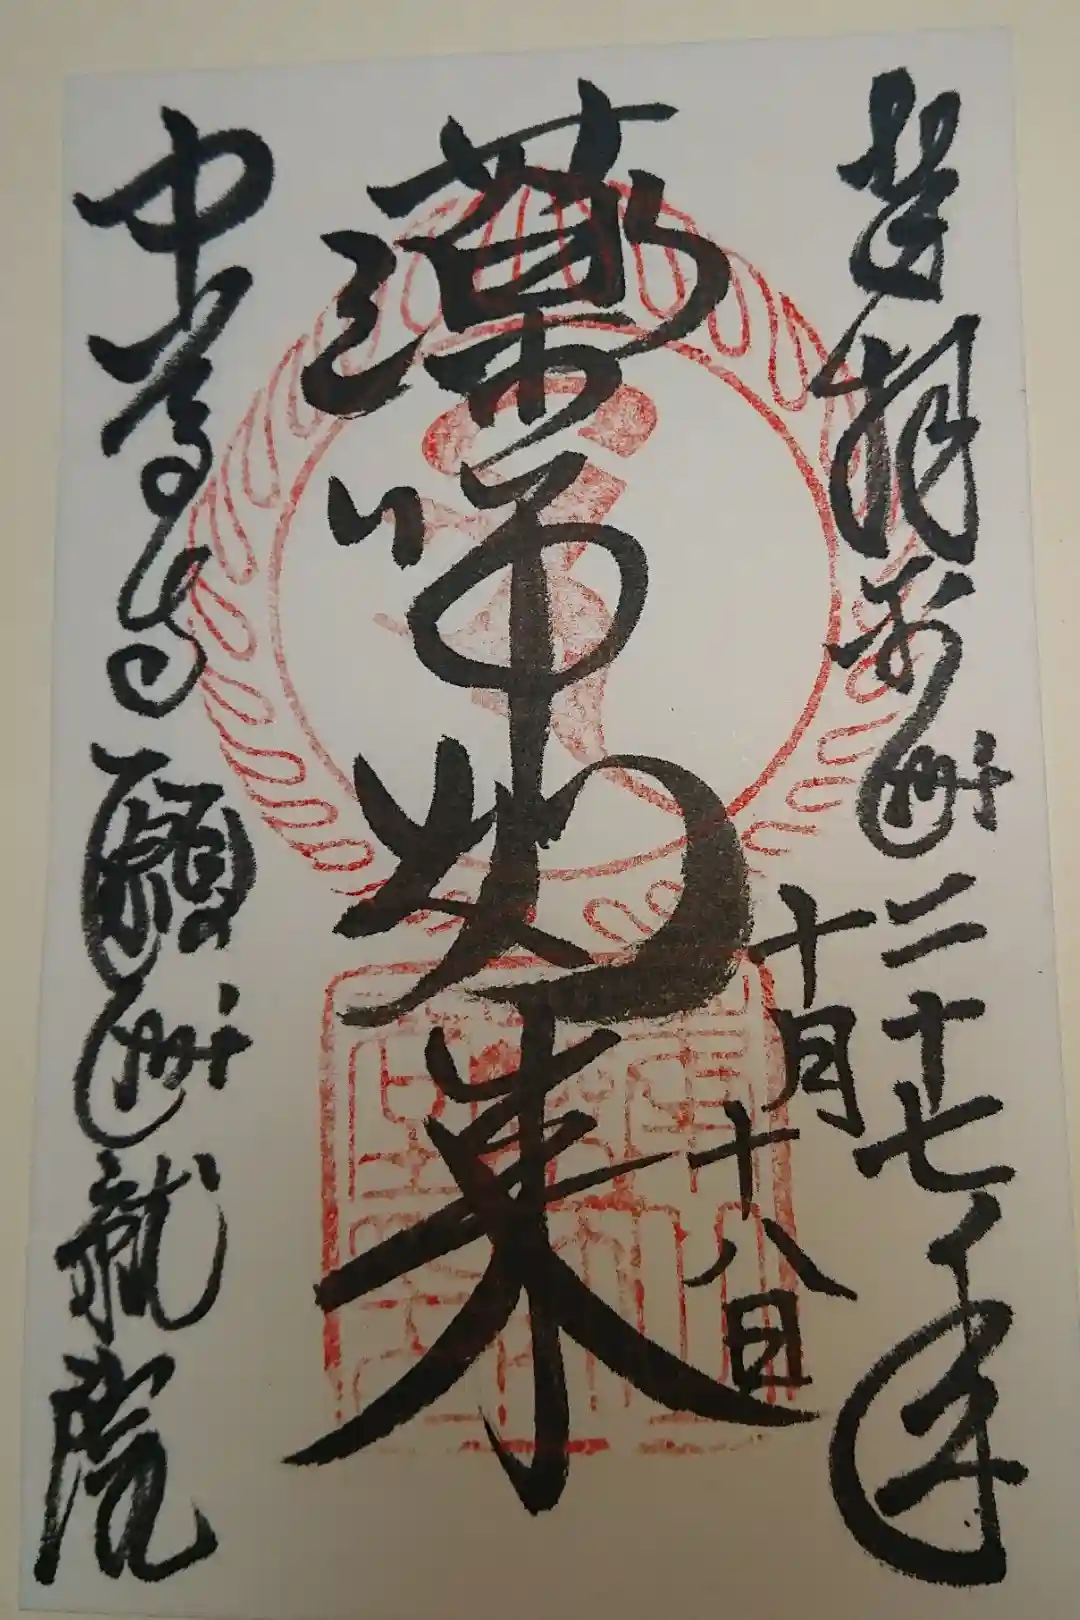 拝 平成二十七年
十月
十八日
薬師如来
中尊寺 願成就院